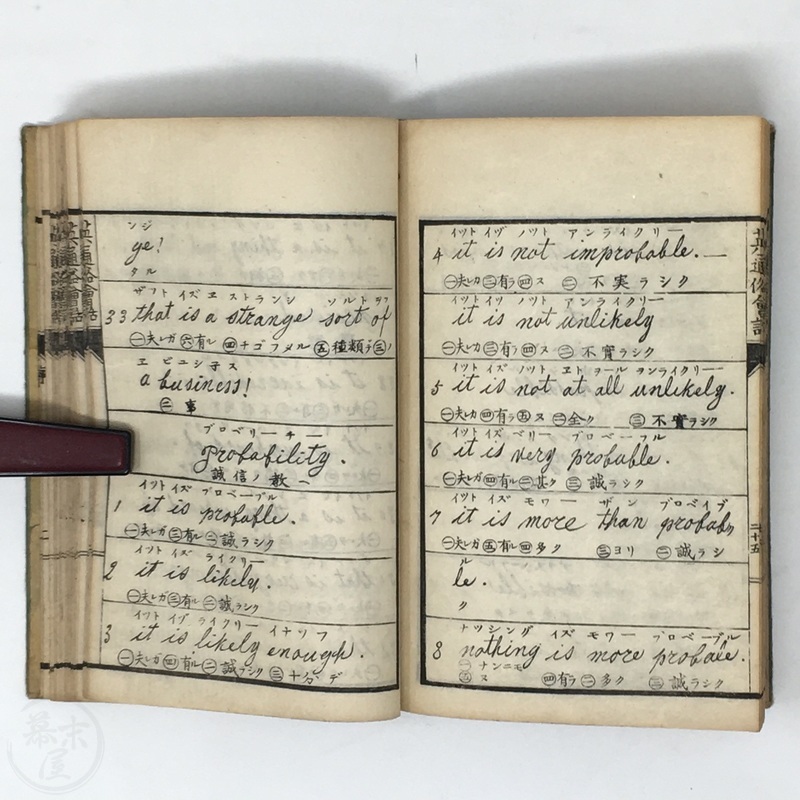 ンジ
ye!
タル
ザフト イズ エ ストランジ ソルト ヲフ
33 that is a strange sort of
㊀夫レガ ㊅有ル ㊃十ゴフメル ㊄種類ラ ㊂ノ
エ ビニシ子ス
a business!
㊁事
プロベリーチー
probability.
誠信ノ敎へ
イット イズ プロベーブル
1 it is probable.
㊀夫レカ ㊂有ル ㊁誠ラシク
イット イズ ライクリー
2 it is likely.
㊀夫レカ ㊂有ル ㊁誠ラシク
イット イヅ ライクリー イナツフ
3 it is likely enough.
㊀夫レガ ㊃有ル ㊁誠ラシク ㊂十分デ
イット イヅ ノット アンライクリー
4 it is not improbable.
㊀夫レカ ㊂有ラ ㊃ス ㊁不実ラシク
イット イツ ノット アンライクリー
it is not unlikely
㊀夫レカ ㊂有ラ ㊃ス ㊁不實ラシク
イット イズ ノット エト ヲール ヲンライクリー
5 it is not at all unlikely.
㊀夫レカ ㊃有ラ ㊄ス ㊁全ク ㊂不實ラシク
イット イズ ベリー プロベーフル
6 it is very probable.
㊀夫レカ ㊃有ル ㊁甚ク ㊂誠ラシク
イット イズ モワー ザン プロベイブ
7 it is more than probab
㊀夫レカ ㊄有ル ㊃多ク ㊂ヨリ ㊁誠ラシ
ル
le.
ク
ナッシング イズ モワー プロベーブル
8 nothing is more probale.
㊀ナンニモ ㊃有ラ ㊁多ク ㊂誠ラシク
㊄ス
英通俗會話
二十五
幕末屋